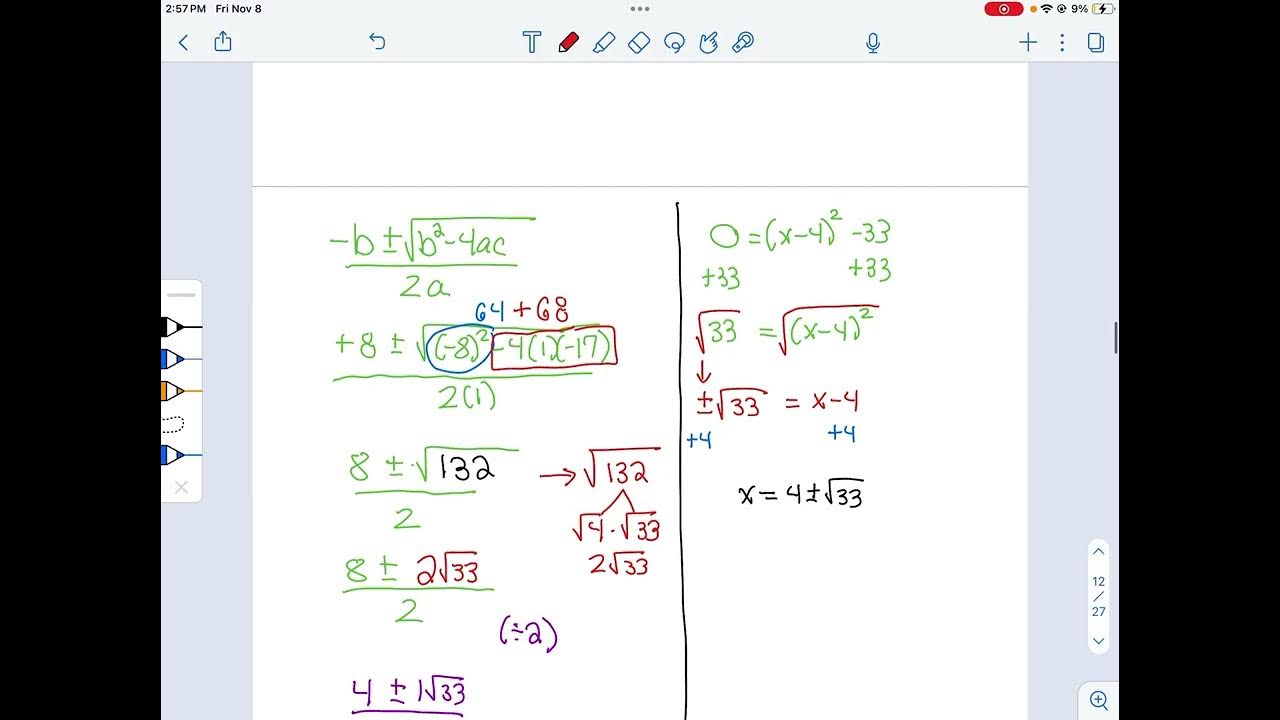 2:57 PM Fri Nov 8
9%
T
-b ± √(b² - 4ac)
2a
64 + 68
+8 ± √((-8)² - 4(1)(-17))
2(1)
8 ± √132
2
→ √132
√4 · √33
2√33
8 ± 2√33
2
(÷2)
4 ± 1√33
0 = (x-4)² - 33
+33 +33
√33 = √((x-4)²)
↓
±√33 = x-4
+4 +4
x = 4 ± √33
12
/
27